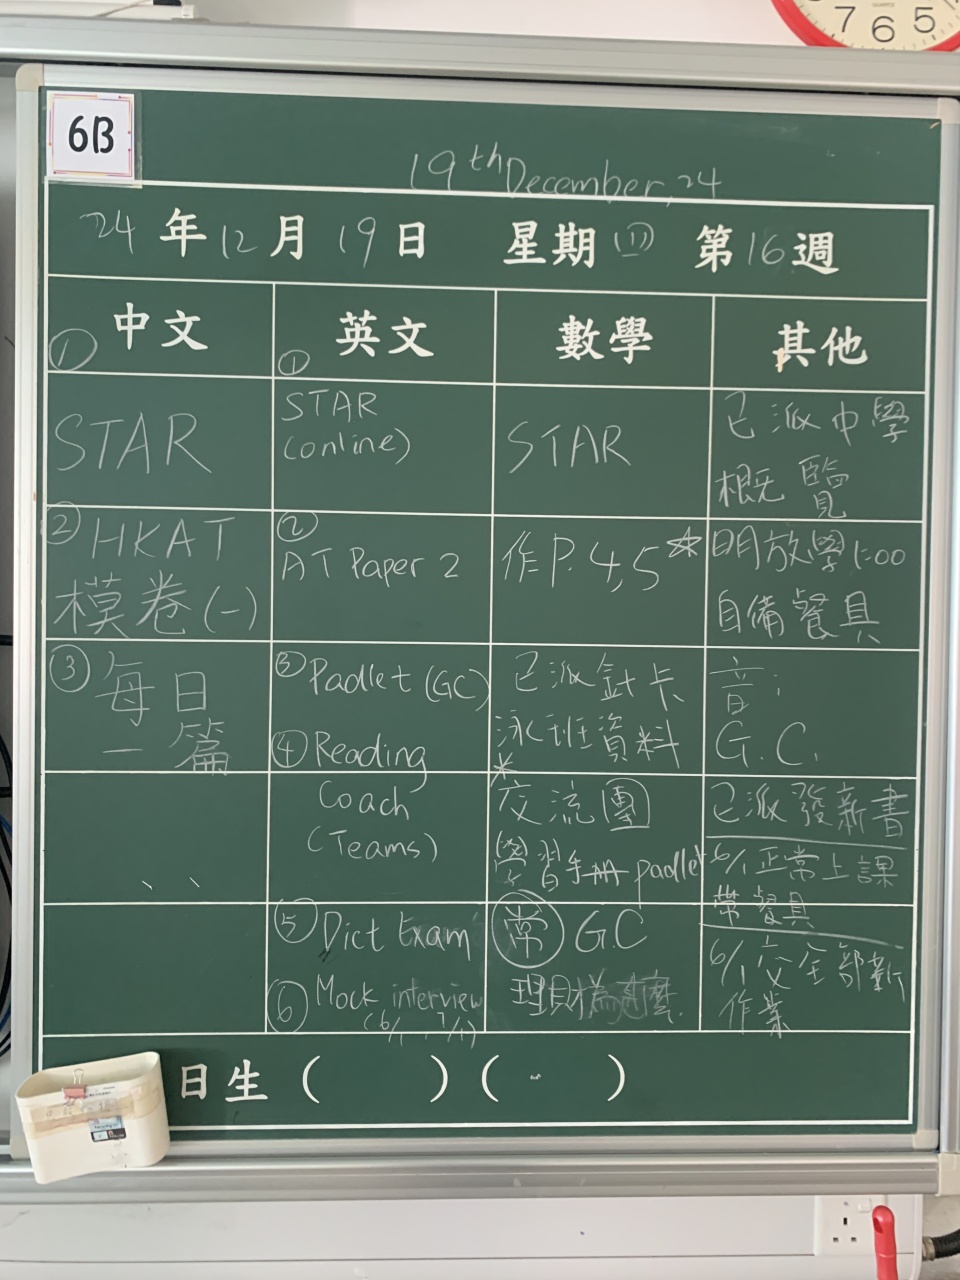 7 6 5
6B
19th December, 24
24年12月19日 星期 第16週
① 中文
① 英文
數學
其他
STAR
STAR
(online)
STAR
已派中學
概覽
② HKAT
模卷(一)
②
AT Paper 2
作P. 4,5
明放學1:00
自備餐具
③ 每日
一篇
③ Padlet (GC)
④ Reading
Coach
(Teams)
已派針卡
泳班資料
音:
G.C.
* 交流團
學習手冊 padlet
已派發新書
6/1 正常上課
帶餐具
⑤ Dict Exam
⑥ Mock interview
(6/1, 7/1)
常 G.C
理財
6/1 交全部新
作業
日生 ( ) ( )